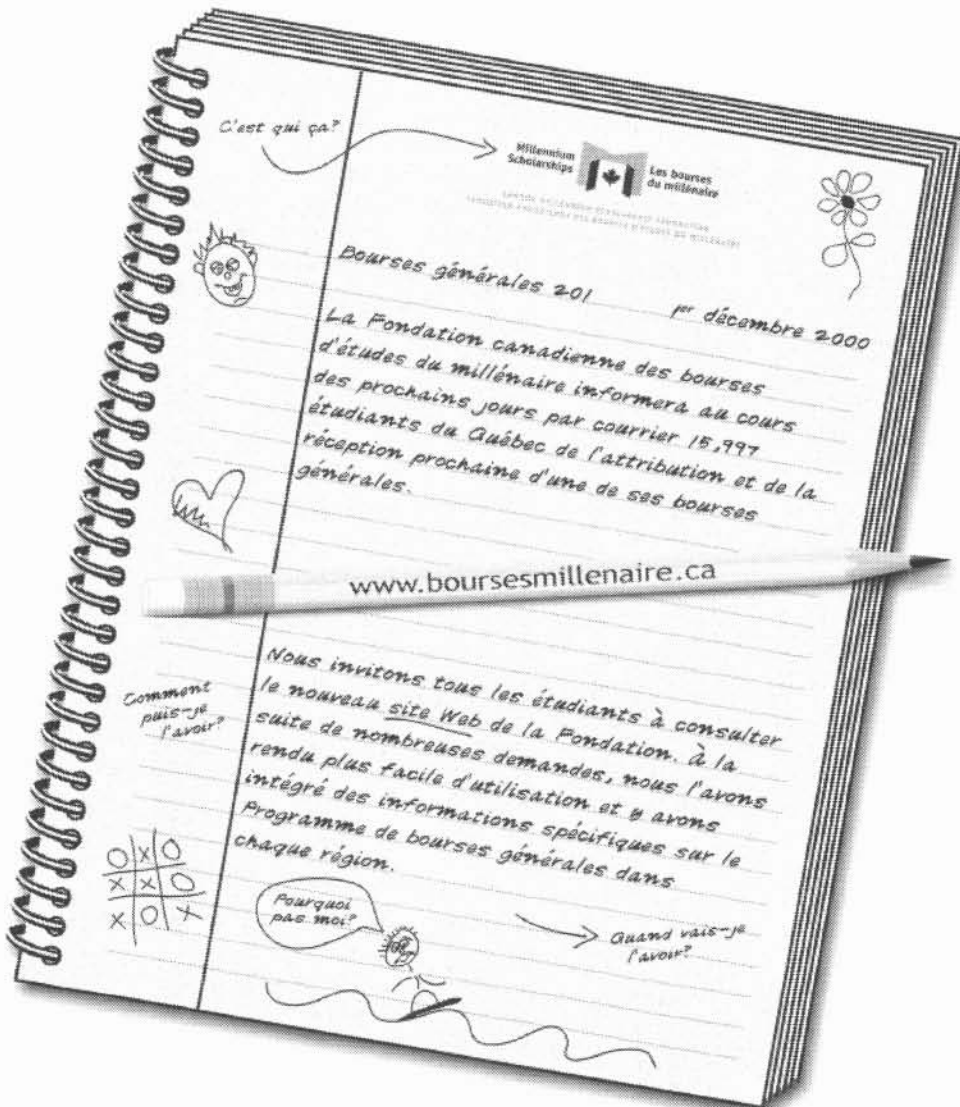 C'est qui ça?
Millennium
Scholarships
Les bourses
du millénaire
Bourses générales 201
1er décembre 2000
La Fondation canadienne des bourses
d'études du millénaire informera au cours
des prochains jours par courrier 15,997
étudiants du Québec de l'attribution et de la
réception prochaine d'une de ses bourses
générales.
www.boursesmillenaire.ca
Comment
puis-je
l'avoir?
Nous invitons tous les étudiants à consulter
le nouveau site Web de la Fondation. À la
suite de nombreuses demandes, nous l'avons
rendu plus facile d'utilisation et y avons
intégré des informations spécifiques sur le
Programme de bourses générales dans
chaque région.
O X O
X X O
X O X
Pourquoi
pas moi?
Quand vais-je
l'avoir?